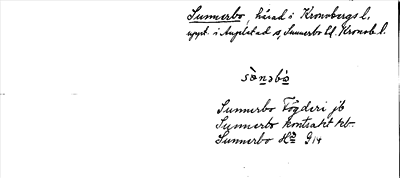 Sunnerbo, härad i Kronobergs l.
uppt. i Angelstad s, Sunnerbo hd, Kronob. l.
Sunnerbo Fögderi jb
Sunnerbo kontrakt kb.
Sunnerbo Hd